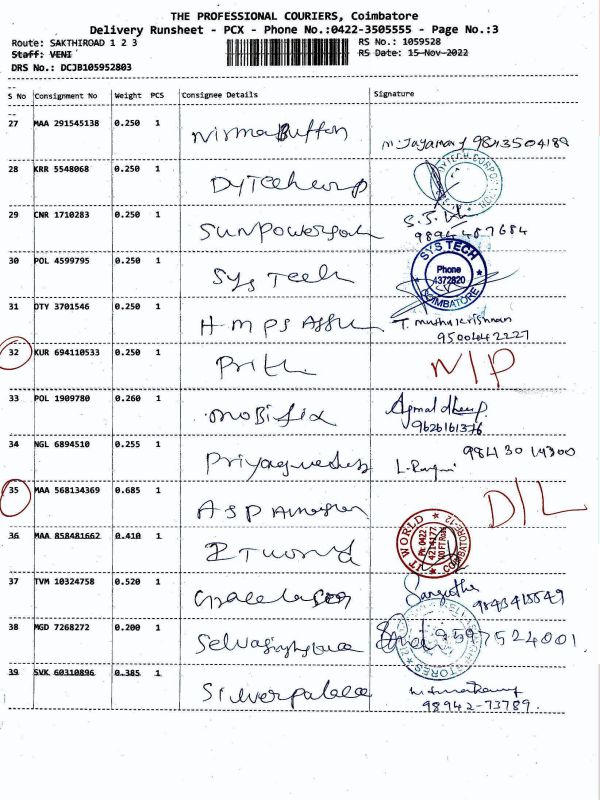 THE PROFESSIONAL COURIERS, Coimbatore
Delivery Runsheet - PCX - Phone No.:0422-3505555 - Page No.:3
Route: SAKTHIROAD 1 2 3
RS No.: 1059528
Staff: VENI
RS Date: 15-Nov-2022
DRS No.: DCJB105952803
S No Consignment No Weight PCS Consignee Details Signature
27 MAA 291545138 0.250 1 Nirma Button M. Jayamary 9843504189
28 KRR 5548068 0.250 1 Dytechcorp
29 CNR 1710283 0.250 1 Sunpowersol 9894487684
30 POL 4599795 0.250 1 Sys Tech
SYS TECH
Phone
4372820
COIMBATORE
31 DTY 3701546 0.250 1 HMPS Assu T. Muthukrishnan
9500442227
32 KUR 694110533 0.250 1 Prith N/P
33 POL 1909780 0.260 1 Mobifix
9626161376
34 NGL 6894510 0.255 1 98430 14300
35 MAA 568134369 0.685 1 ASP D/L
36 MAA 858481662 0.410 1
IT WORLD
COIMBATORE-12
37 TVM 10324758 0.520 1 Sangeetha
38 MGD 7268272 0.200 1 9597524001
STORES
39 SVK 60310896 0.385 1 Silverpalace
98942-73789